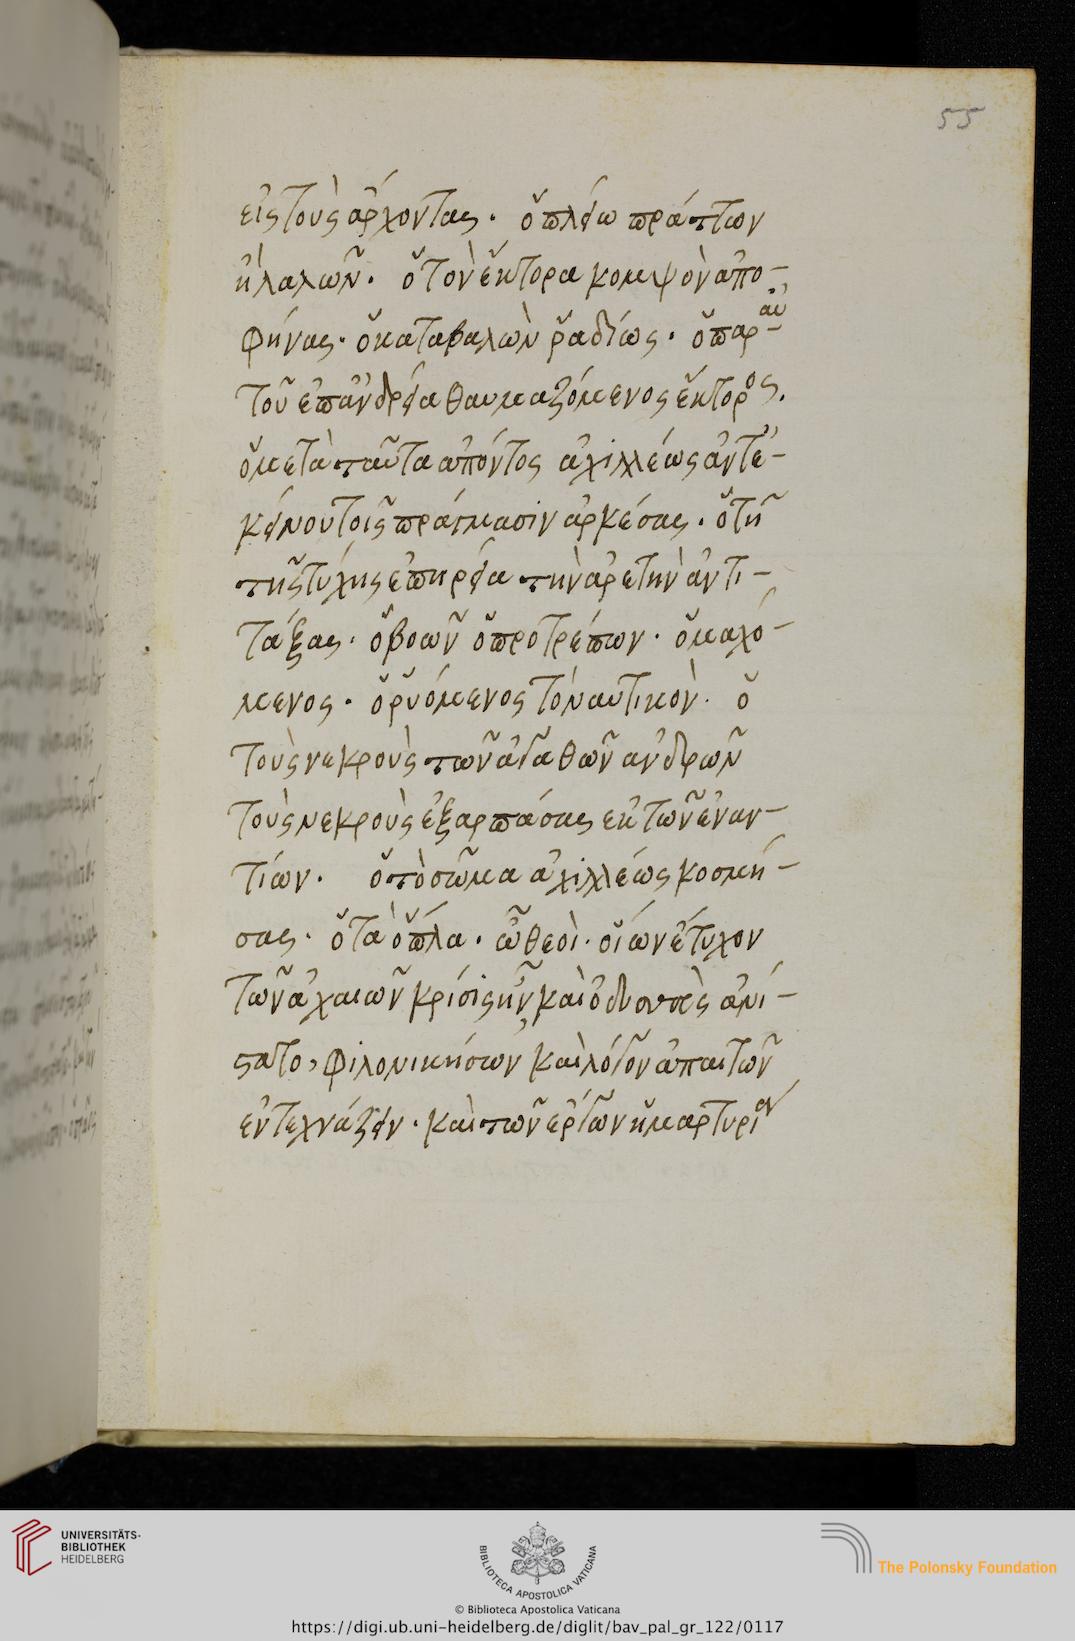 55
εἰς τοὺς ἄρχοντας · ὁ πλείω πράττων
ἢ λαλῶν · ὁ τὸν ἕκτορα κομψὸν ἀπο-
φήνας · ὁ καταβαλὼν ῥαδίως · ὁ παρ' αὐ-
τοῦ ἐπ' ἀνδρεία θαυμαζόμενος ἕκτορος .
ὁ μετὰ ταῦτα ἀπόντος ἀχιλλέως ἀντ' ἐ-
κείνου τοῖς πράγμασιν ἀρκέσας · ὁ τῆ
τῆς τύχης ἐπηρεία τὴν ἀρετὴν ἀντι-
τάξας · ὁ βοῶν ὁ προτρέπων · ὁ μαχό-
μενος · ὁ ῥυόμενος τὸ ναυτικὸν · ὁ
τοὺς νεκροὺς τῶν ἀγαθῶν ἀνδρῶν
τοὺς νεκροὺς ἐξαρπάσας ἐκ τῶν ἐναν-
τίων · ὁ τὸ σῶμα ἀχιλλέως κοσμή-
σας · ὁ τὰ ὅπλα · ὦ θεοὶ · οἵων ἔτυχον
τῶν ἀχαιῶν κρίσις ἦν, καὶ ὀδυσσεὺς ἀνί-
στατο, φιλονικήσων καὶ λόγον ἀπαιτῶν
ἐντεχνάζειν · καὶ τῶν ἔργων ἡ μαρτυρία
UNIVERSITÄTS-
BIBLIOTHEK
HEIDELBERG
BIBLIOTECA APOSTOLICA VATICANA
© Biblioteca Apostolica Vaticana
The Polonsky Foundation
https://digi.ub.uni-heidelberg.de/diglit/bav_pal_gr_122/0117